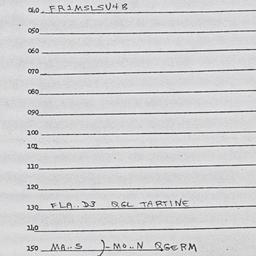 040 FR1MSLSV4B
050
060
070
080
090
100
102
110
120
130 FLA..D3 QGL TARTINE
140
150 MA..S )-MO..N QGERM